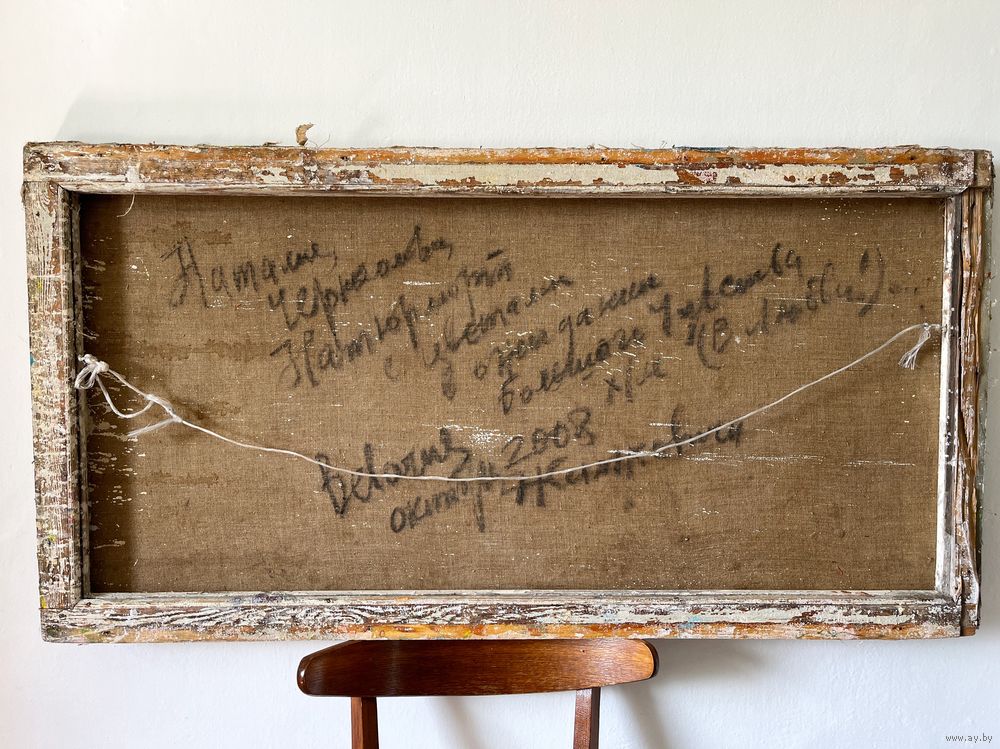 Наталие,
Натюрморт
с цветами
ожидании
большого чувства
(в любви!)...
х/м
Belarus 2008
октябрь
www.ay.by